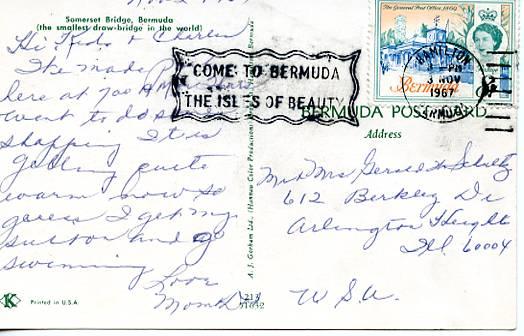 Somerset Bridge, Bermuda
(the smallest draw-bridge in the world)
Hi Kids &
We made
here at 700 AM
went to do
shopping It is
getting quite
warm now so
guess I get my
suit on and go
swimming
Love
Mom & Dad
K
Printed in U.S.A.
A. J. Gorham Ltd., (Hannau Color Productions)
COME TO BERMUDA
THE ISLES OF BEAUTY
The General Post Office, 1869
Bermuda
HAMILTON
PM
3 NOV
1967
BERMUDA
BERMUDA POSTCARD
Address
Mr & Mrs Gerald W. Schultz
612 Berkley Dr
Arlington Heights
Ill 60004
U S A.
213
51632